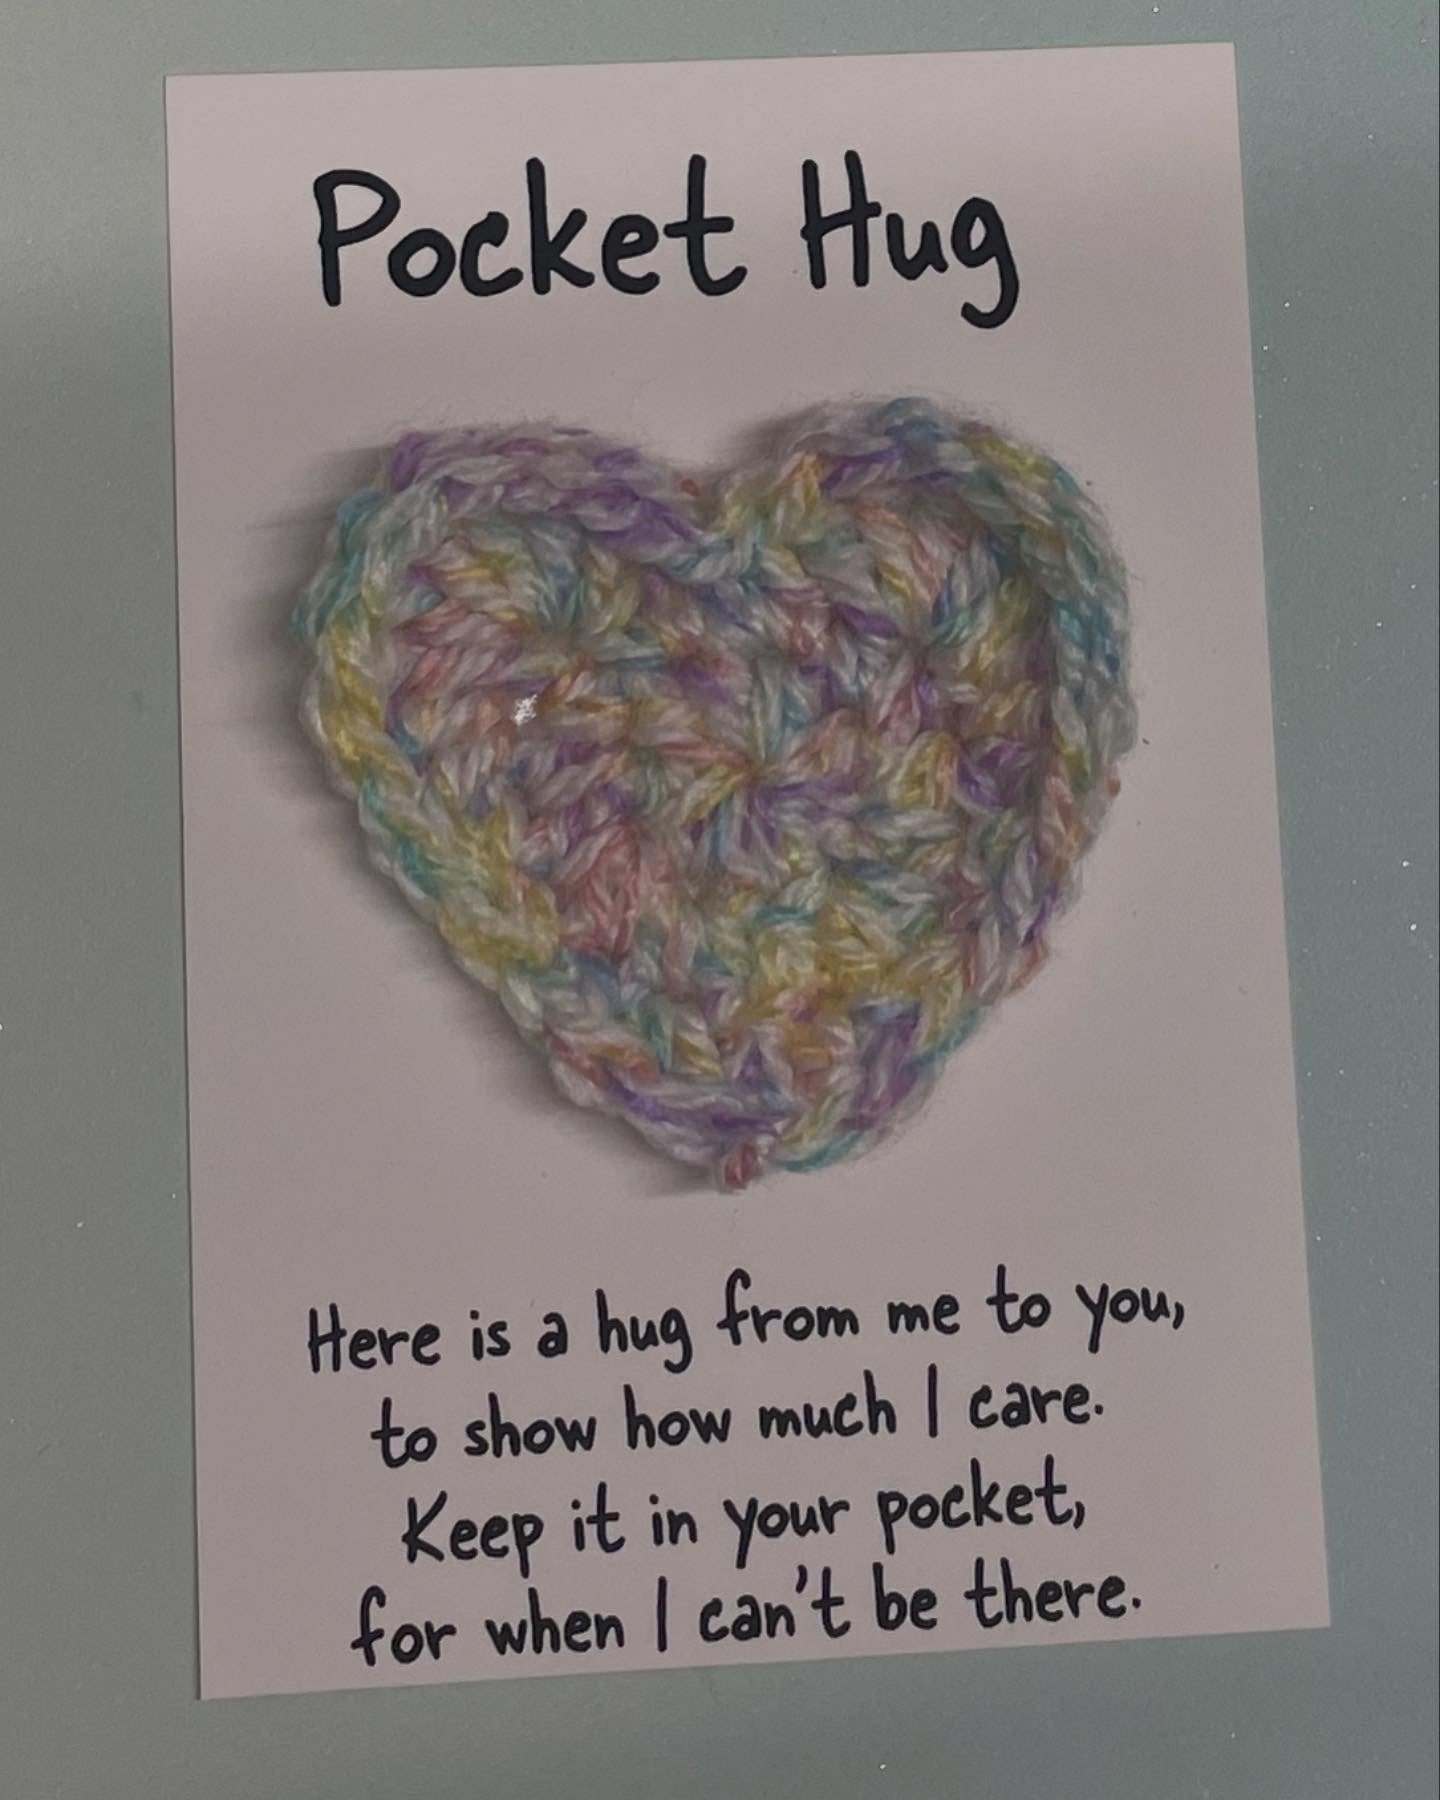 Pocket Hug
Here is a hug from me to you,
to show how much I care.
Keep it in your pocket,
for when I can't be there.